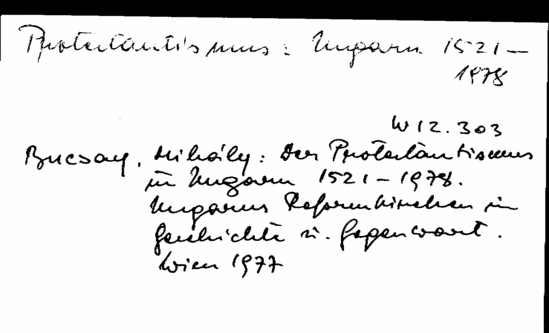 Protestantismus: Ungarn 1521–
1978
W 12.303
Bucsay, Mihály: Der Protestantismus
in Ungarn 1521–1978.
Ungarns Reformkirchen in
Geschichte u. Gegenwart.
Wien 1977